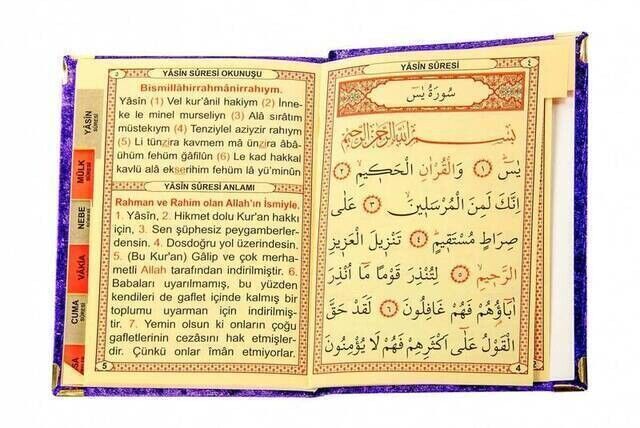 YÂSİN SÛRESİ ٤
سُورَةُ يٰسٓ
بِسْمِ اللّٰهِ الرَّحْمٰنِ الرَّحِيمِ
يٰسٓ ﴿١﴾ وَالْقُرْاٰنِ الْحَكِيمِ ﴿٢﴾
اِنَّكَ لَمِنَ الْمُرْسَلِينَ ﴿٣﴾ عَلٰى
صِرَاطٍ مُسْتَقِيمٍ ﴿٤﴾ تَنْزِيلَ الْعَزِيزِ
الرَّحِيمِ ﴿٥﴾ لِتُنْذِرَ قَوْمًا مَٓا اُنْذِرَ
اٰبَٓاؤُهُمْ فَهُمْ غَافِلُونَ ﴿٦﴾ لَقَدْ حَقَّ
الْقَوْلُ عَلٰٓى اَكْثَرِهِمْ فَهُمْ لَا يُؤْمِنُونَ
4
2
٥ YÂSİN SÛRESİ OKUNUŞU
Bismillâhirrahmânirrahıym.
Yâsîn (1) Vel kur'ânil hakiym (2) İnne-
ke le minel murseliyn (3) Alâ sırâtım
müstekıym (4) Tenziylel aziyzir rahıym
(5) Li tünzira kavmem mâ ünzira âbâ-
ühüm fehüm ğâfilûn (6) Le kad hakkal
kavlü alâ ekserihim fehüm lâ yü'minûn
YÂSÎN SÛRESİ ANLAMI
Rahman ve Rahim olan Allah'ın İsmiyle.
1. Yâsîn, 2. Hikmet dolu Kur'an hakkı
için, 3. Sen şüphesiz peygamberler-
densin. 4. Dosdoğru yol üzerindesin.
5. (Bu Kur'an) Gâlip ve çok merha-
metli Allah tarafından indirilmiştir. 6.
Babaları uyarılmamış, bu yüzden
kendileri de gaflet içinde kalmış bir
toplumu uyarman için indirilmiş-
tir. 7. Yemin olsun ki onların çoğu
gafletlerinin cezasını hak etmişler-
dir. Çünkü onlar îmân etmiyorlar.
5
YÂSİN
SÛRESİ
MÜLK
SÛRESİ
NEBE
SÛRESİ
VÂKIA
SÛRESİ
CUMA
SÛRESİ